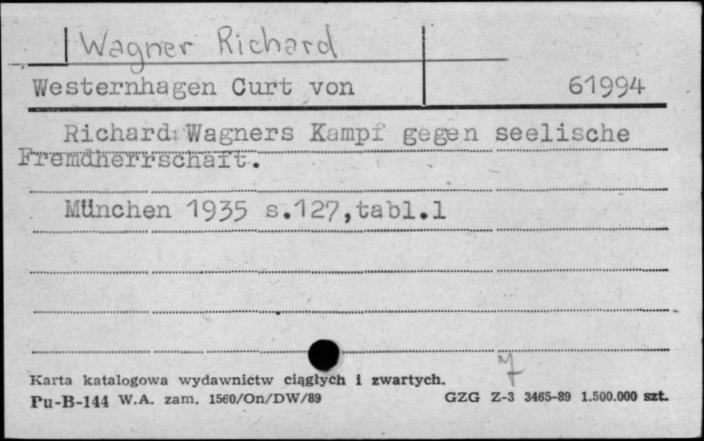 Wagner Richard
Westernhagen Curt von 61994
Richard Wagners Kampf gegen seelische
Fremdherrschaft.
München 1935 s.127,tabl.1
Karta katalogowa wydawnictw ciągłych i zwartych.
Pu-B-144 W.A. zam. 1560/On/DW/89 GZG Z-3 3465-89 1.500.000 szt.